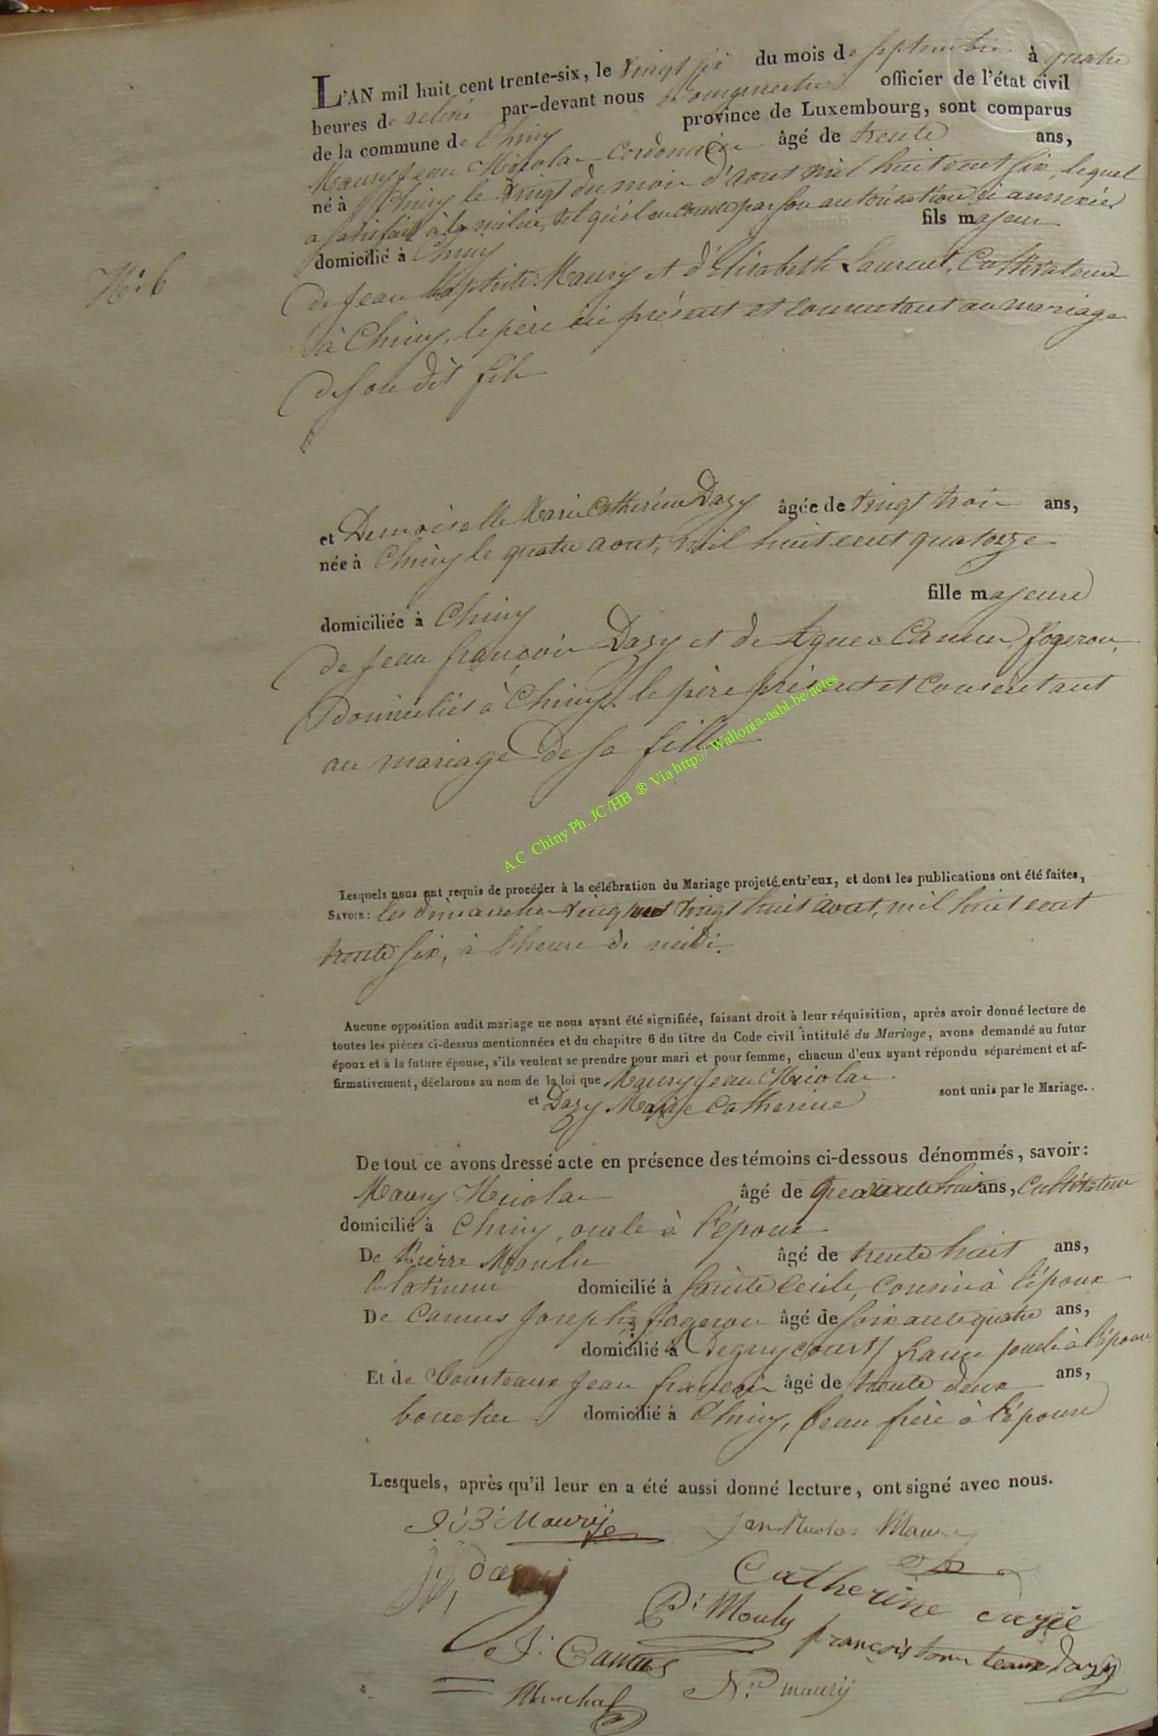 L'AN mil huit cent trente-six, le vingt six du mois de septembre à quatre
heures de relevé par-devant nous Bourgmestre officier de l'état civil
de la commune de Chiny province de Luxembourg, sont comparus
Maury Jean Nicolas cordonnier âgé de trente ans,
né à Chiny le vingt du mois d'aout mil huit cent six, lequel
a satisfait à la milice, tel qu'il conste par son autorisation ci annexée
domicilié à Chiny fils majeur
N° 6
de Jean Baptiste Maury et d'Elisabeth Laurent, Cultivateurs
à Chiny, le père ici présent et consentant au mariage
de son dit fils
et Demoiselle Marie Catherine Dazy âgée de vingt trois ans,
née à Chiny le quatre aout, mil huit cent quatorze
domiciliée à Chiny fille majeure
de Jean françois Dazy et de Agnes Camus, fogeron,
domiciliés à Chiny, le père présent et consentant
au mariage de sa fille
A.C. Chiny Ph. JC/HB ® Via http:// Wallonia-asbl.be/actes
Lesquels nous ont requis de procéder à la célébration du Mariage projeté entr'eux, et dont les publications ont été faites,
SAVOIR: les dimanches vingt huit aout, mil huit cent
trente six, à l'heure de midi.
Aucune opposition audit mariage ne nous ayant été signifiée, faisant droit à leur réquisition, après avoir donné lecture de
toutes les pièces ci-dessus mentionnées et du chapitre 6 du titre du Code civil intitulé du Mariage, avons demandé au futur
époux et à la future épouse, s'ils veulent se prendre pour mari et pour femme, chacun d'eux ayant répondu séparément et af-
firmativement, déclarons au nom de la loi que Maury Jean Nicolas
et Dazy Marie Catherine sont unis par le Mariage.
De tout ce avons dressé acte en présence des témoins ci-dessous dénommés, savoir:
Maury Nicolas âgé de ans, Cultivateur
domicilié à Chiny, oncle à l'époux
De Pierre Moulu âgé de trente huit ans,
domicilié à Sainte Cecile, cousin à l'époux
De Camus Joseph fogeron âgé de soixante quatre ans,
domicilié à france oncle à l'épouse
Et de Tourteaux Jean francois âgé de trente deux ans,
domicilié à Chiny, beau frère à l'épouse
Lesquels, après qu'il leur en a été aussi donné lecture, ont signé avec nous.
J: B: Maury Jean Nicolas Maury
J f Dazy Catherine dazie
P: Mouly françois tourteaux Dazy
J: Camus
N: maury